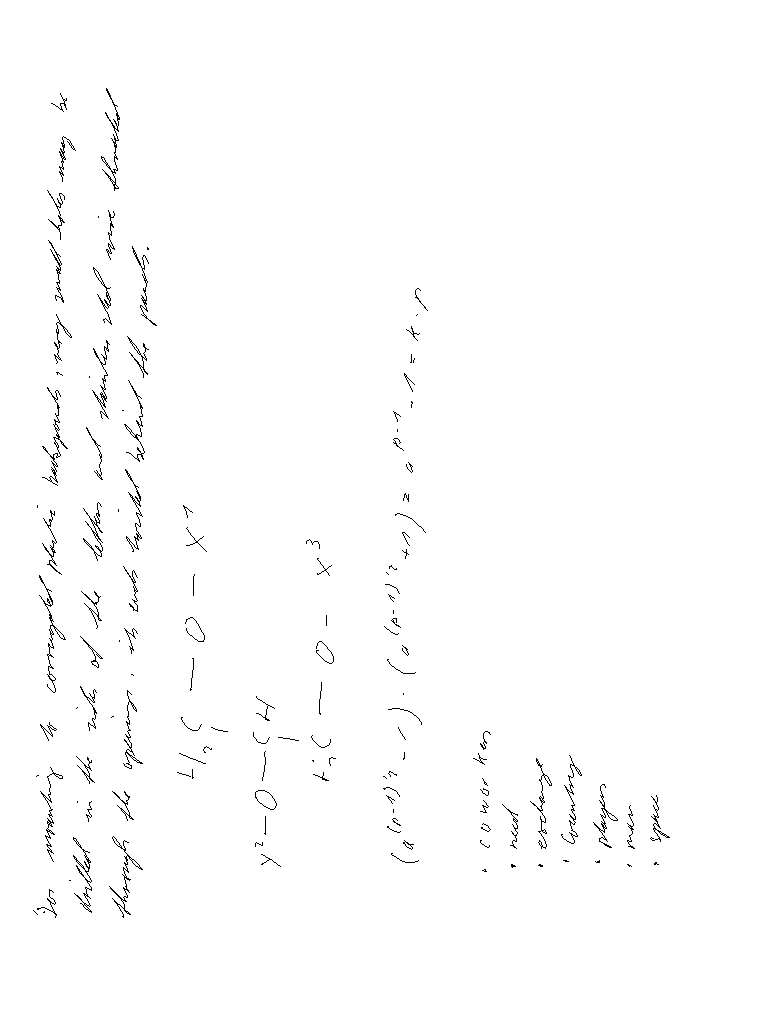 For mounting to corrugated plastic backgrounds, very small holes may be
drilled in the sides of the letters and stainless steel wire threaded
through the openings, its ends twisted behind the panels.
H₂C — O — X¹
|
Y² — O — CH
|
H₂C — O — X³
(a^(p-1)'² - 1) · (a^(p-1)'² + 1) = a^p-1 - 1 = k · p
• coworker
• need
• exchange
• Country
• players
• man
• space